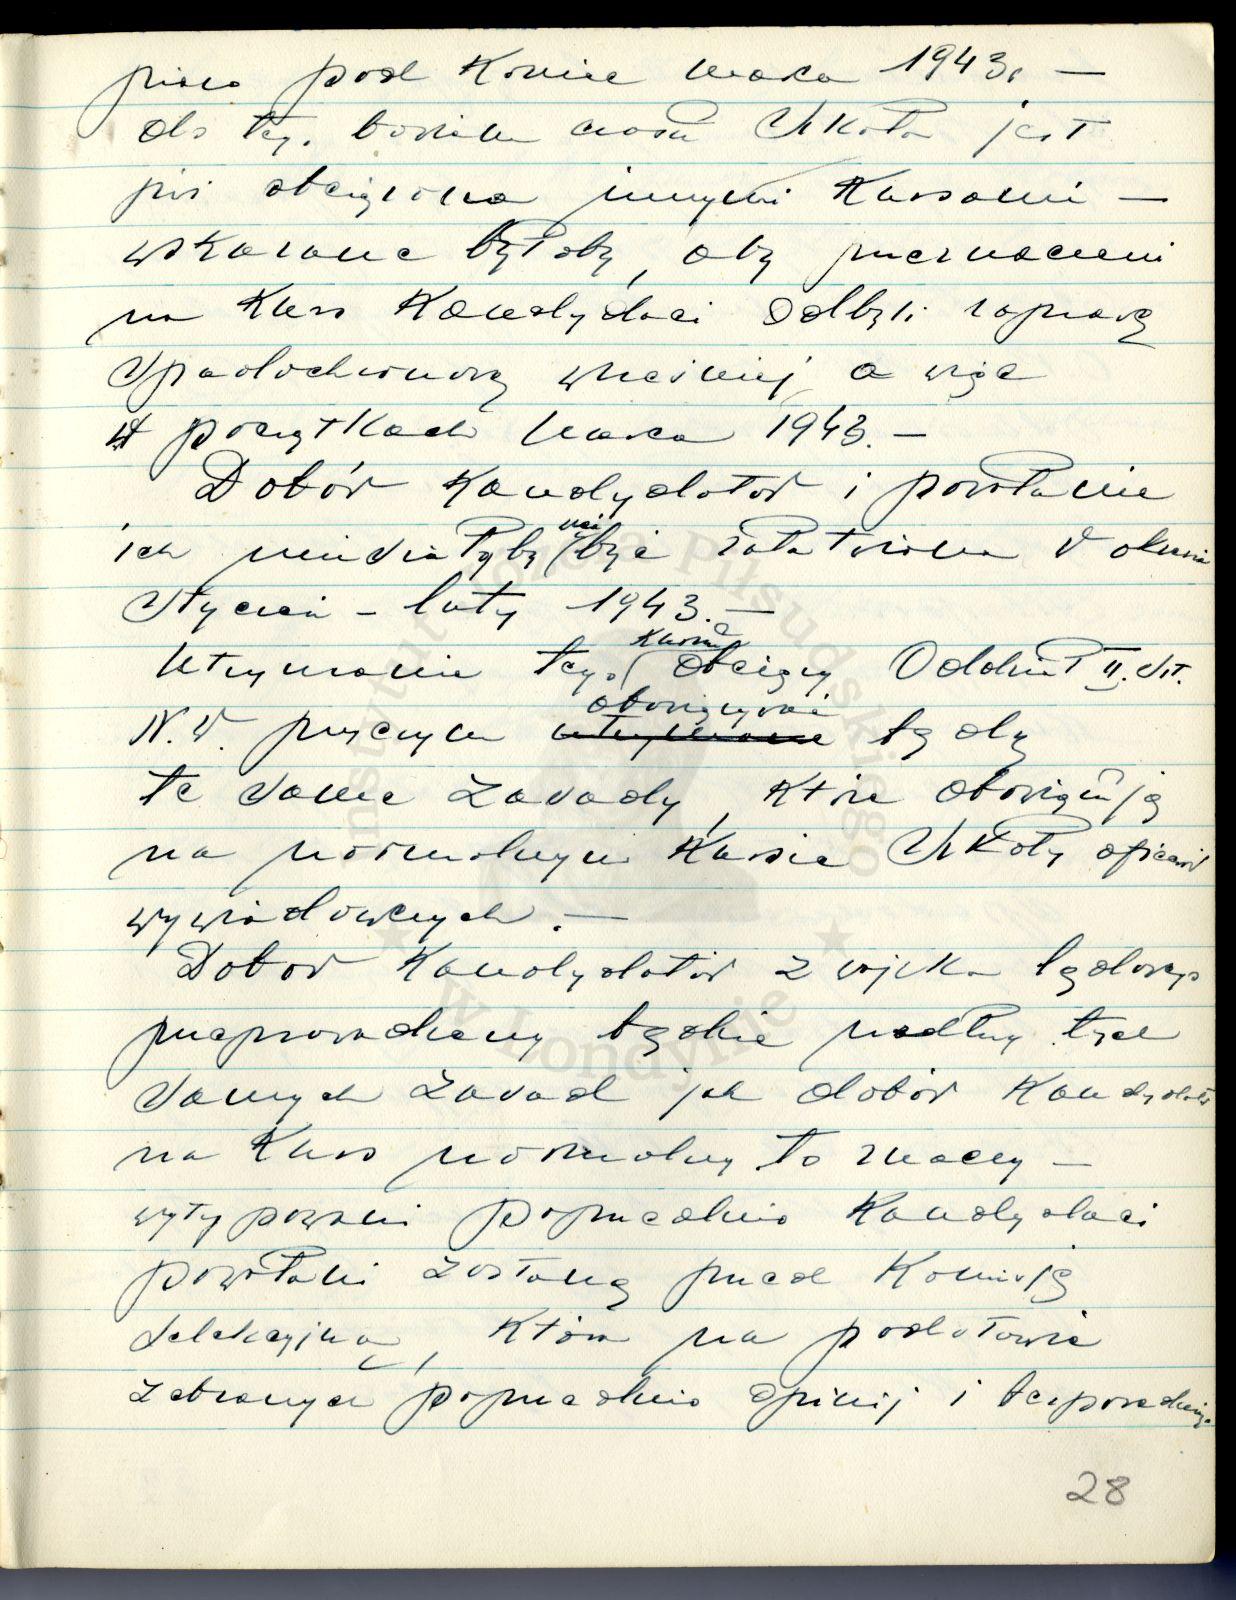 piero pod koniec marca 1943. —
do tego bowiem czasu Szkoła jest
już obciążona innymi kursami —
wskazane byłoby, aby przeznaczeni
na kurs kandydaci odbyli zaprawę
spadochronową wcześniej, a więc
w początkach marca 1943. —
Dobór kandydatów i powołanie
ich musiałyby być załatwione w okresie
Styczeń – luty 1943. —
kursu
Utrzymanie tego obciąży Oddział II. Szt.
obowiązywać
N.W. przyczym będą
te same zasady, które obowiązują
na normalnym kursie Szkoły oficerów
wywiadowczych. —
Dobór kandydatów z wojska lądowego
przeprowadzony będzie według tych
samych zasad jak dobór kandydatów
na kurs normalny to znaczy —
wytypowani poprzednio kandydaci
powołani zostaną przed Komisję
Selekcyjną, która na podstawie
zebranych poprzednio opinij i bezpośredniego
28
Instytut Józefa Piłsudskiego
w Londynie